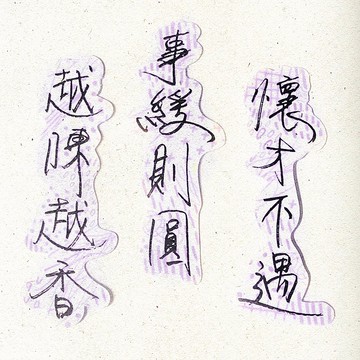 懷才不遇
事緩則圓
越陳越香